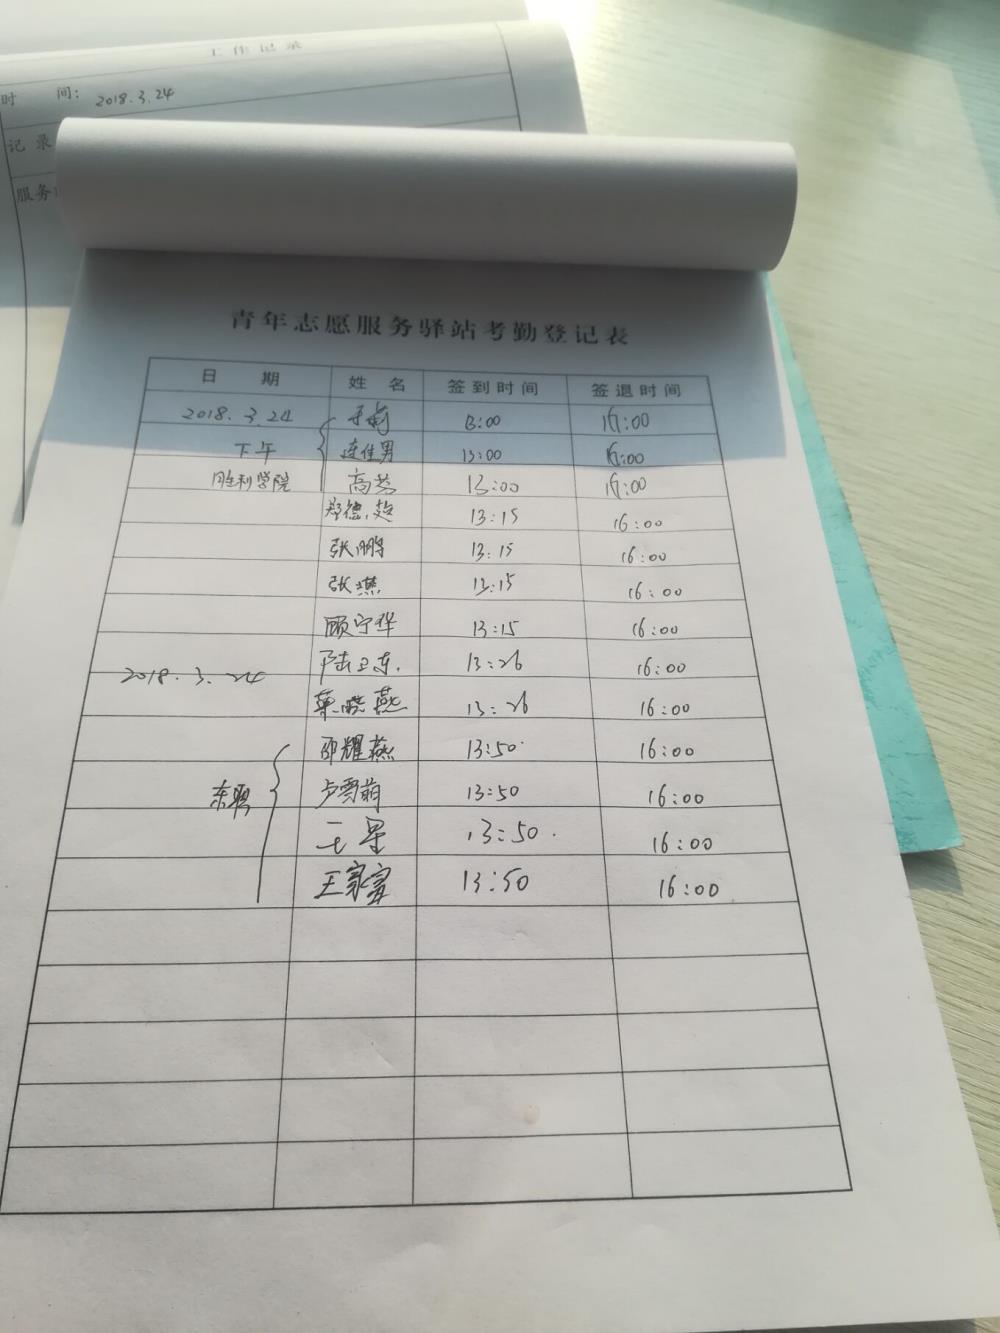 工作记录
时 间: 2018.3.24
记录
服务
青年志愿服务驿站考勤登记表
日 期 姓 名 签到时间 签退时间
2018.3.24 13:00 16:00
下午 连佳男 13:00 16:00
胜利学院 高芸 13:00 16:00
郑德 13:15 16:00
张鹏 13:15 16:00
张燕 13:15 16:00
顾宁华 13:15 16:00
陆卫东. 13:26 16:00
2018.3.24 晓燕 13:26 16:00
邵耀燕 13:50 16:00
东 卢雪萌 13:50 16:00
王星 13:50. 16:00
王家富 13:50 16:00